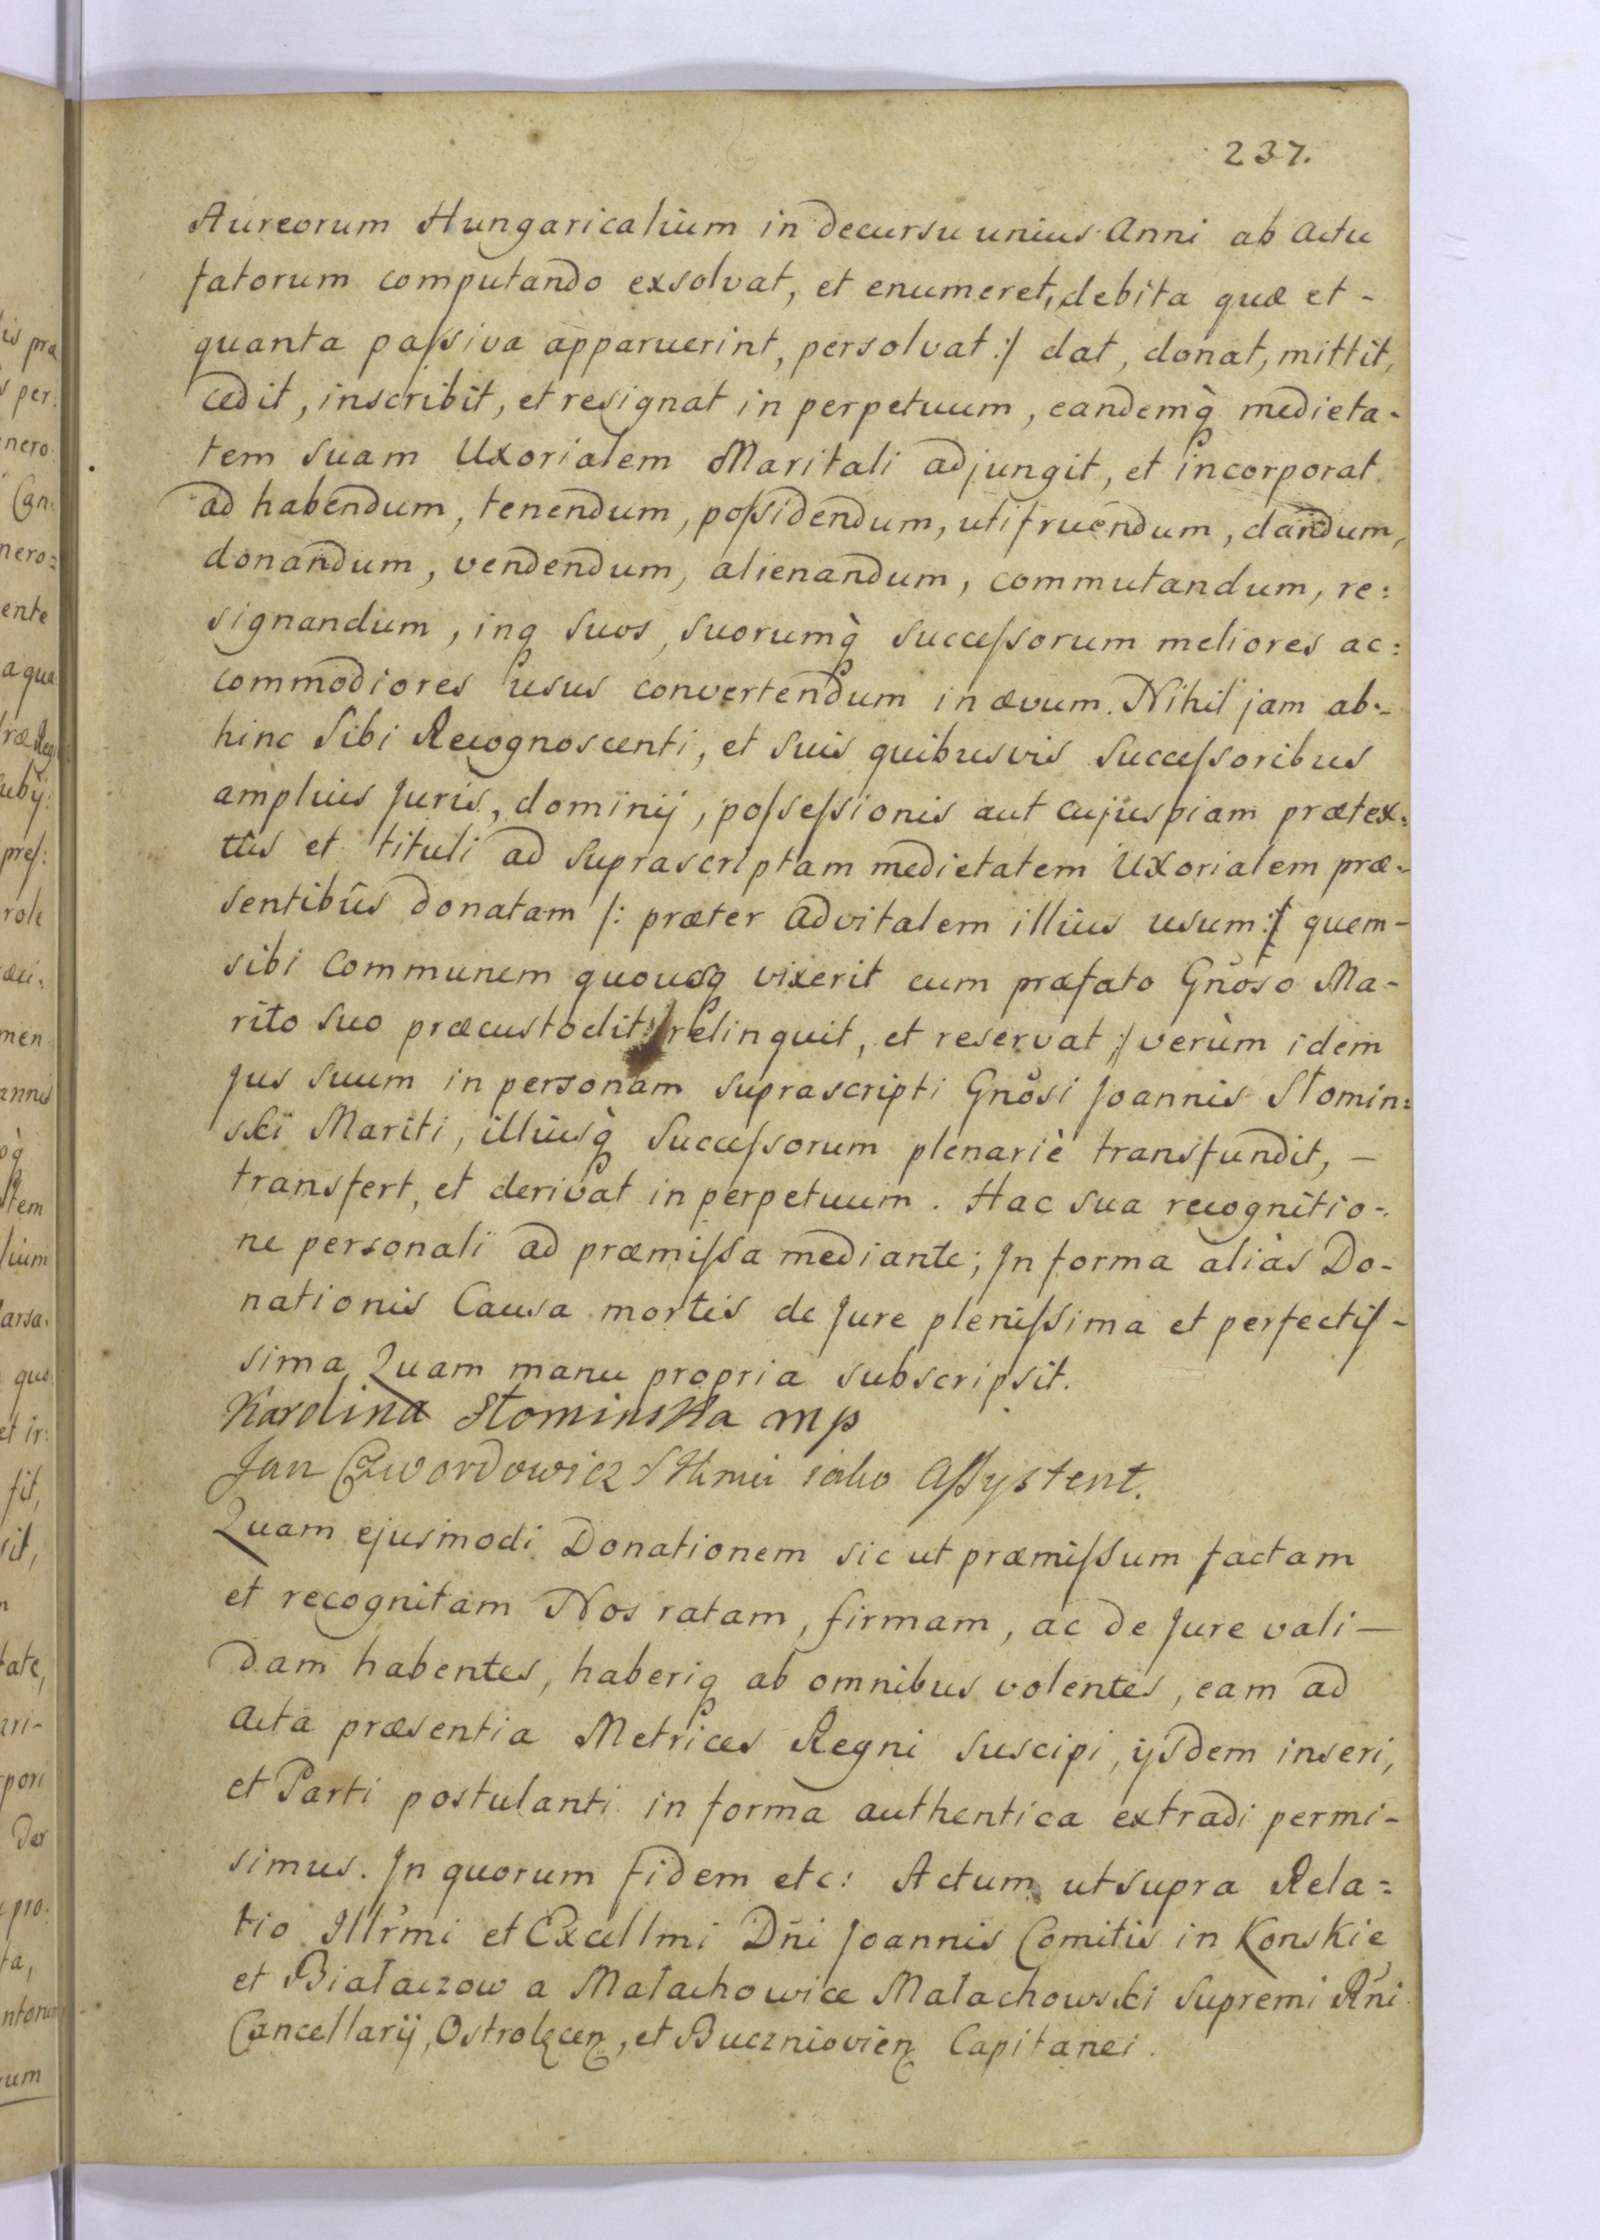 237.
Aureorum Hungaricalium in decursu unius Anni ab actu
fatorum computando exsolvat, et enumeret, debita quæ et -
quanta paſsiva apparuerint, persolvat :/ dat, donat, mittit,
cedit, inscribit, et resignat in perpetuum, eandemq̀ medieta-
tem suam Uxorialem Maritali adjungit, et incorporat
ad habendum, tenendum, poſsidendum, utifruendum, dandum,
donandum, vendendum, alienandum, commutandum, re:
signandum, inq suos, suorumq̀ succeſsorum meliores ac:
commodiores usus convertendum in ævum. Nihil jam ab-
hinc Sibi Recognoscenti, et suis quibusvis succeſsoribus
amplius Juris, dominij, poſseſsionis aut cujuspiam prætex:
tûs et tituli ad suprascriptam medietatem Uxorialem præ-
sentibûs donatam /: præter advitalem illius usum :/ quem-
sibi communem quousq vixerit cum præfato Gnõso Ma-
rito suo præcustodit relinquit, et reservat :/ verùm idem
Jus suum in personam suprascripti Gnõsi Joannis Słomin:
ski Mariti, illiusq̀ succeſsorum plenariè transfundit, —
transfert, et derivat in perpetuum. Hac sua recognitio-
ne personali ad præmiſsa mediante; In forma aliàs Do-
nationis Causa mortis de Jure pleniſsima et perfectiſ-
sima Quam manu propria subscripsit.
Karolina Słominska mp
Jan iako Aſsystent.
Quam ejusmodi Donationem sic ut præmiſsum factam
et recognitam Nos ratam, firmam, ac de Jure vali —
dam habentes, haberiq ab omnibus volentes, eam ad
acta præsentia Metrices Regni suscipi, ijsdem inseri,
et Parti postulanti in forma authentica extradi permi-
simus. In quorum fidem etc: Actum ut supra Rela=
tio Illr̃mi et Excellmi Dñi Joannis Comitis in Konskie
et Białaczow a Małachowice Małachowski Supremi Rñi
Cancellarij, Ostrolęcen, et Buczniovien Capitanei.